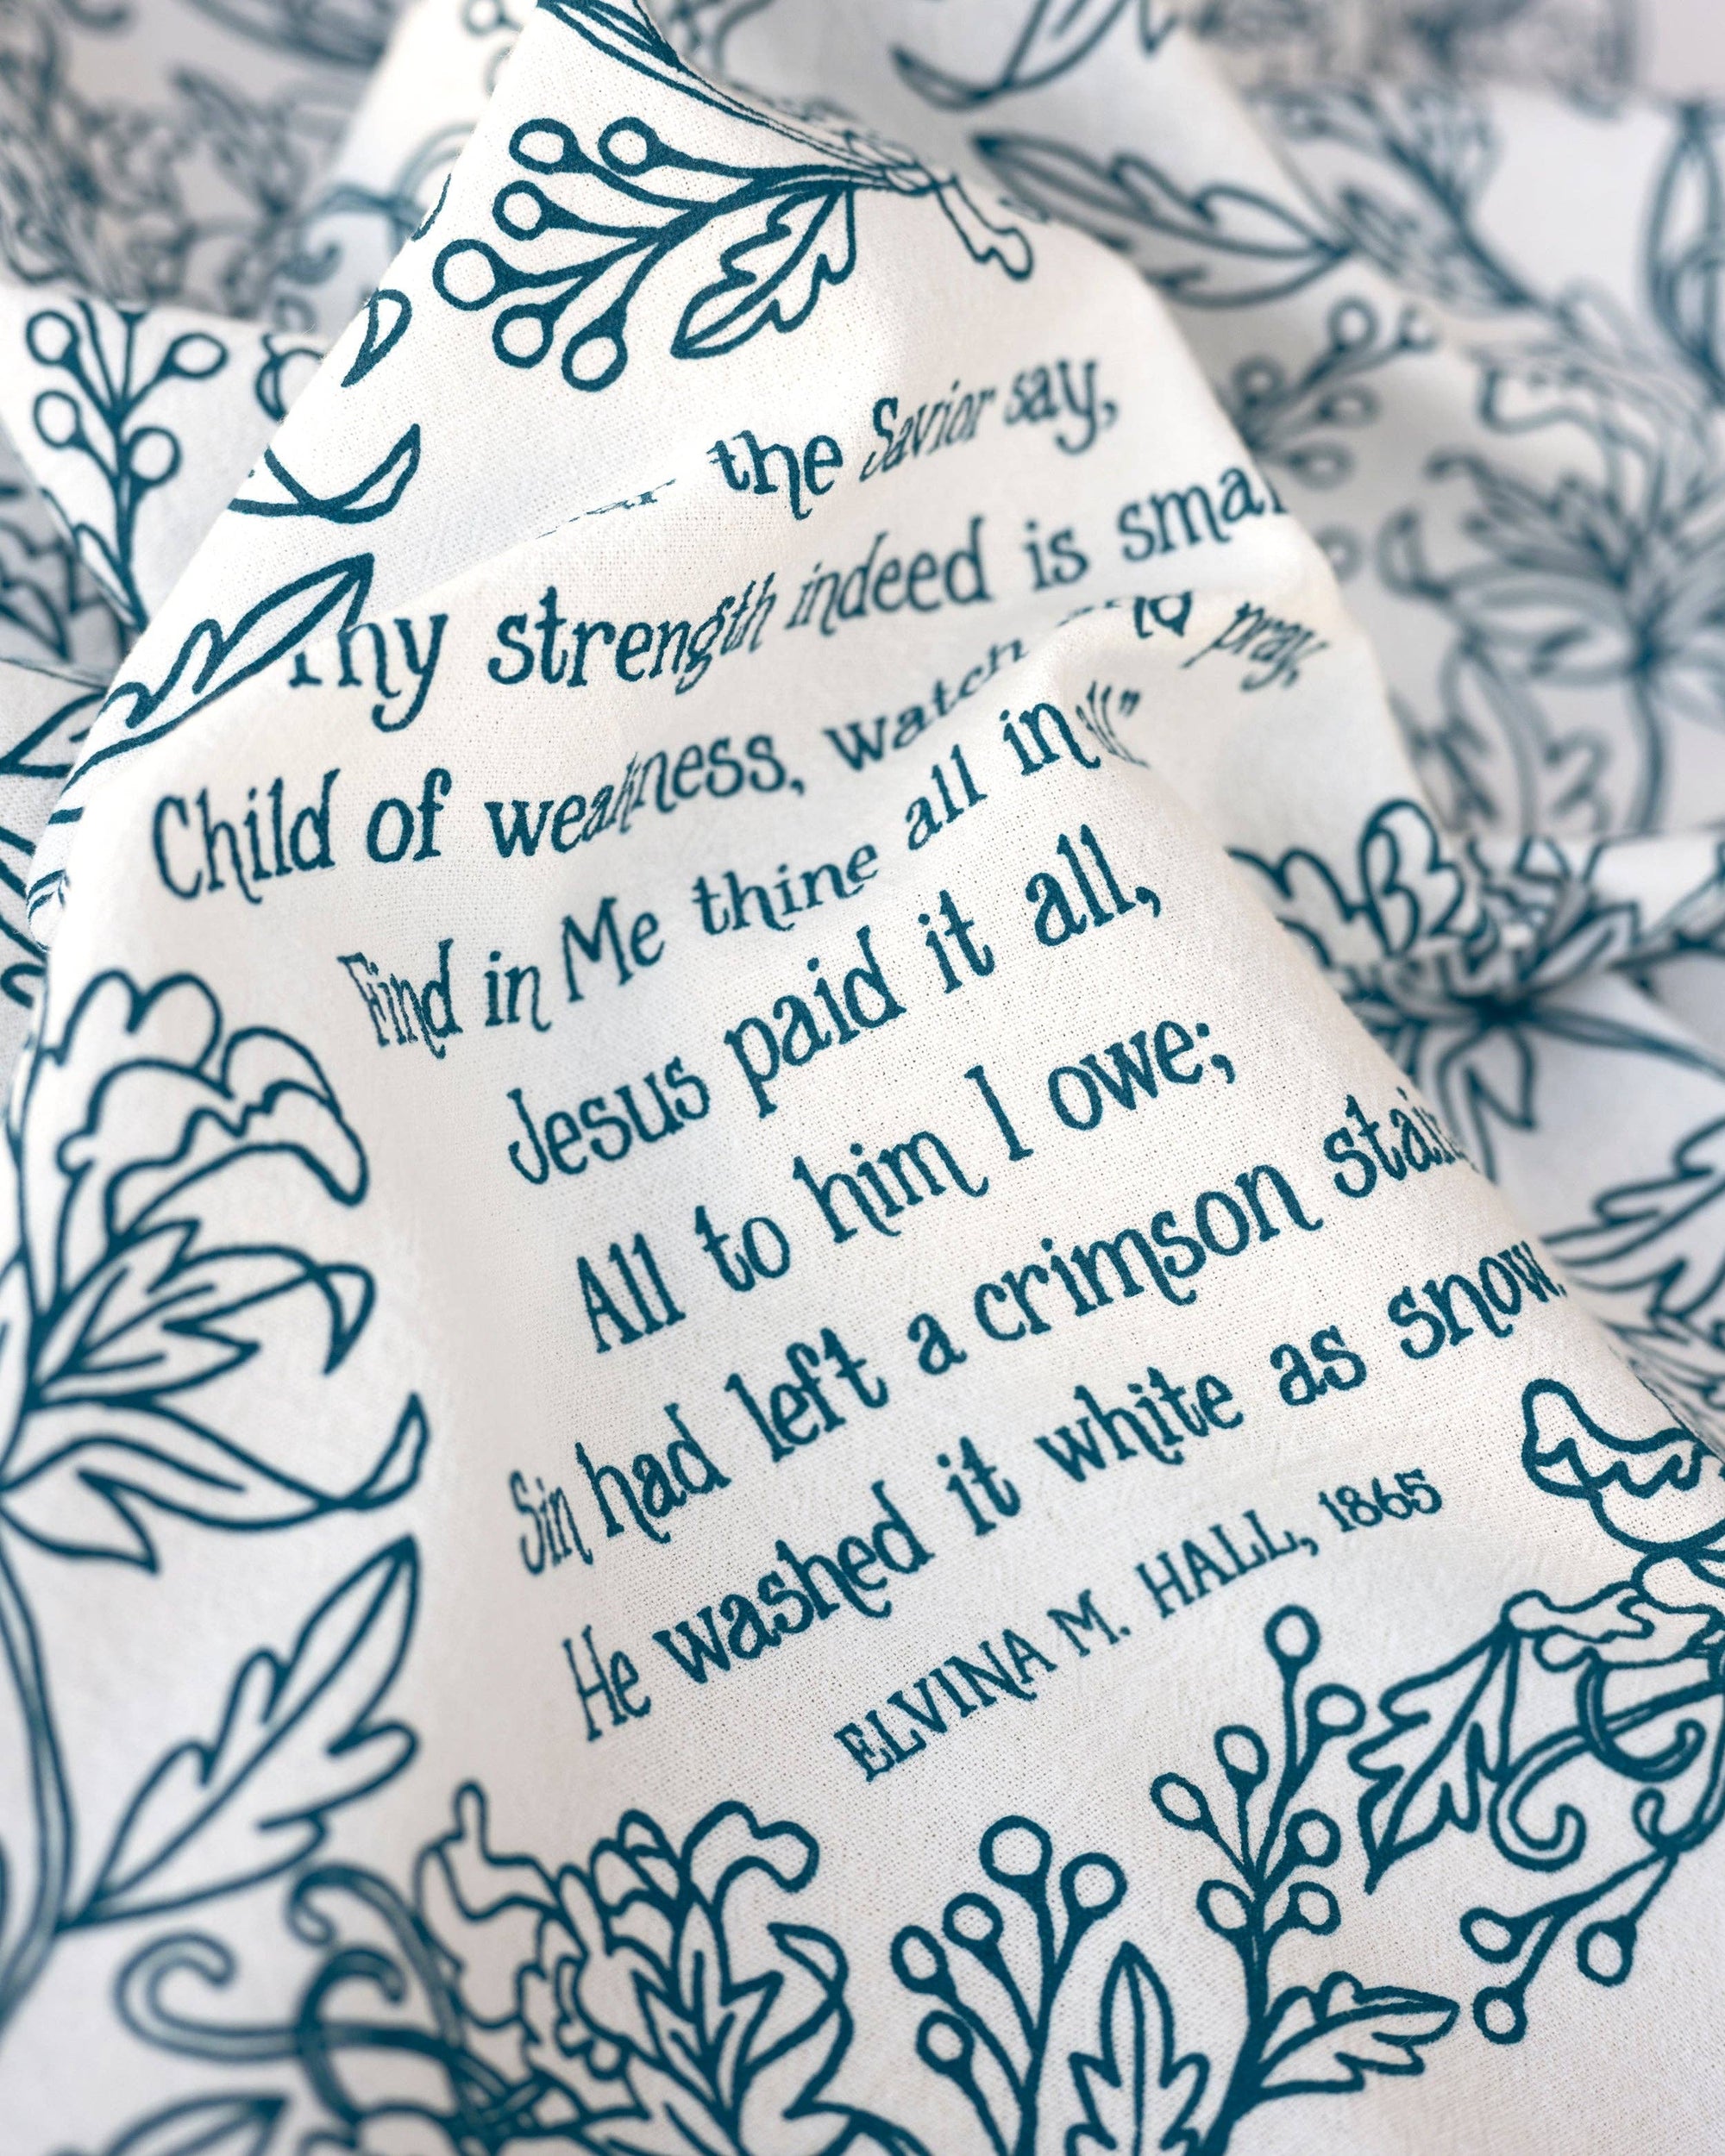 the Savior say,
Thy strength indeed is small
Child of weakness, watch and pray,
Find in Me thine all in all”
Jesus paid it all,
All to him I owe;
Sin had left a crimson stain
He washed it white as snow.
ELVINA M. HALL, 1865